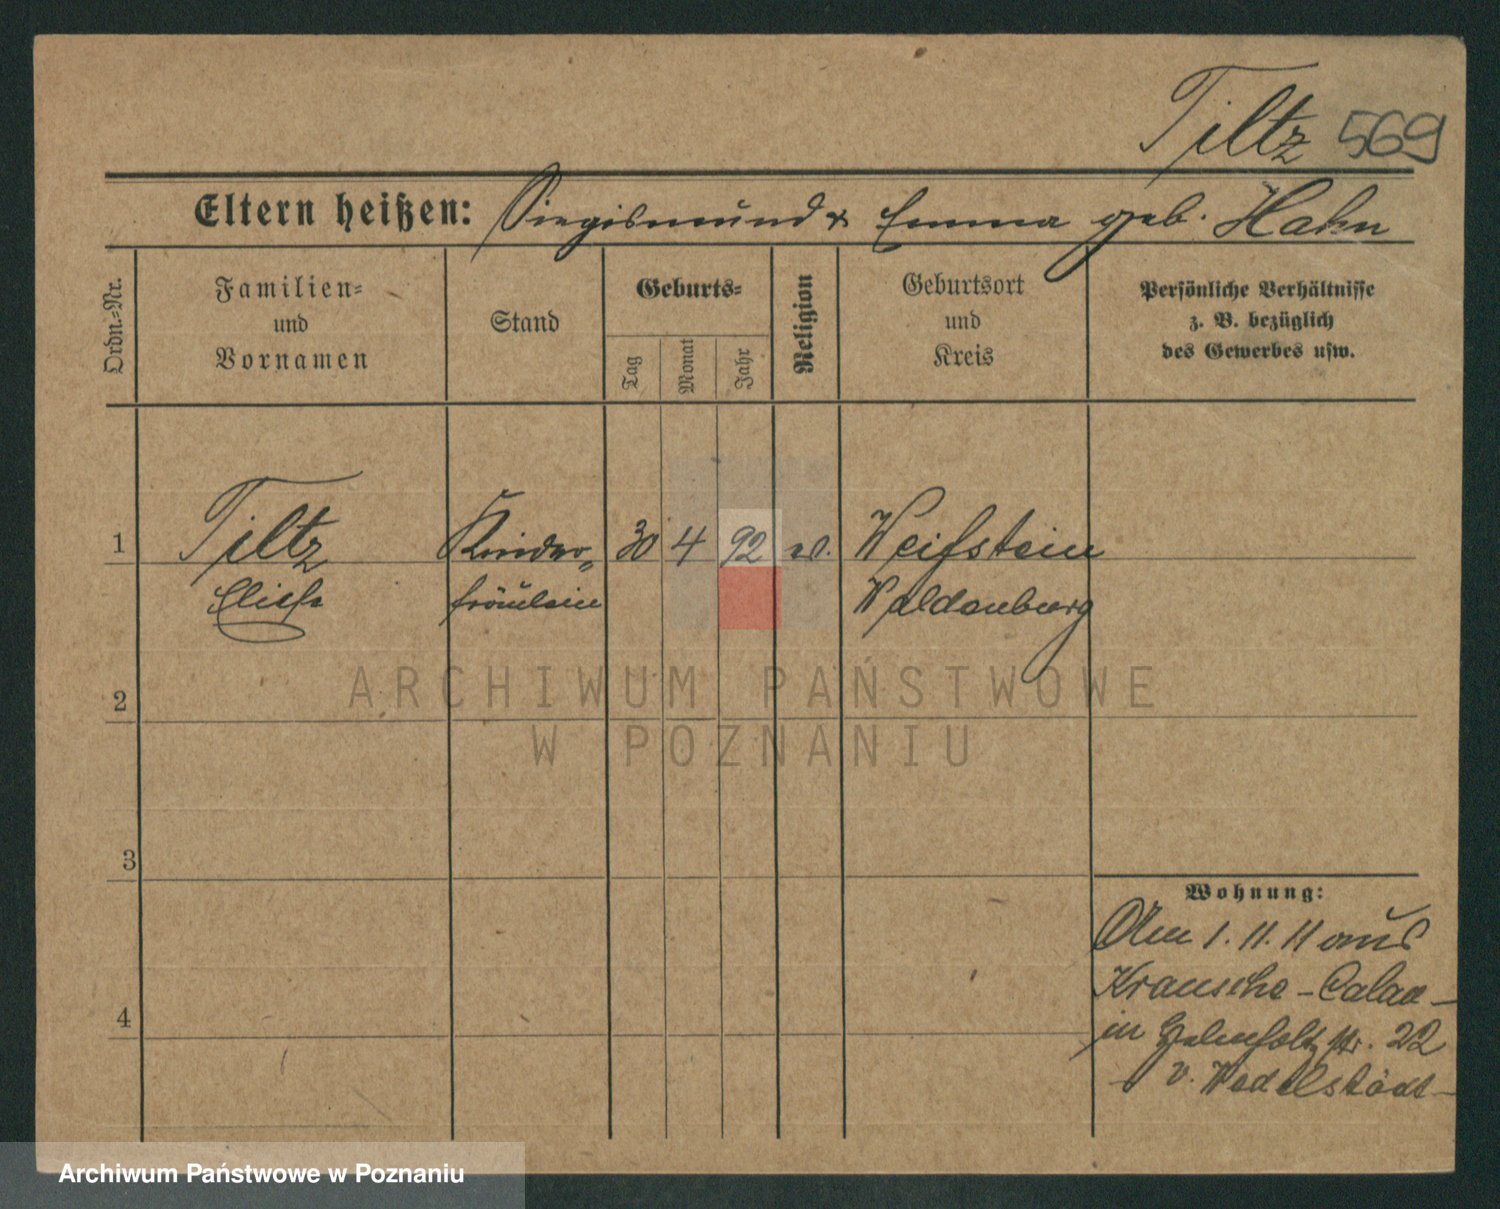 Tiltz 569
Eltern heißen: Siegismund & Emma geb. Hahn
Ordn.-Nr.
Familien-
und
Vornamen
Stand
Geburts-
Tag
Monat
Jahr
Religion
Geburtsort
und
Kreis
Persönliche Verhältnisse
z. B. bezüglich
des Gewerbes usw.
1 Tiltz Kinder- 30 4 92 Weißstein
Eliese fräulein Waldenburg
2
ARCHIWUM PAŃSTWOWE
W POZNANIU
3
Wohnung:
Am 1. 11. 11 aus
Krausche -
4
in Helmholtzstr. 22
b v. Wedelstädt -
Archiwum Państwowe w Poznaniu